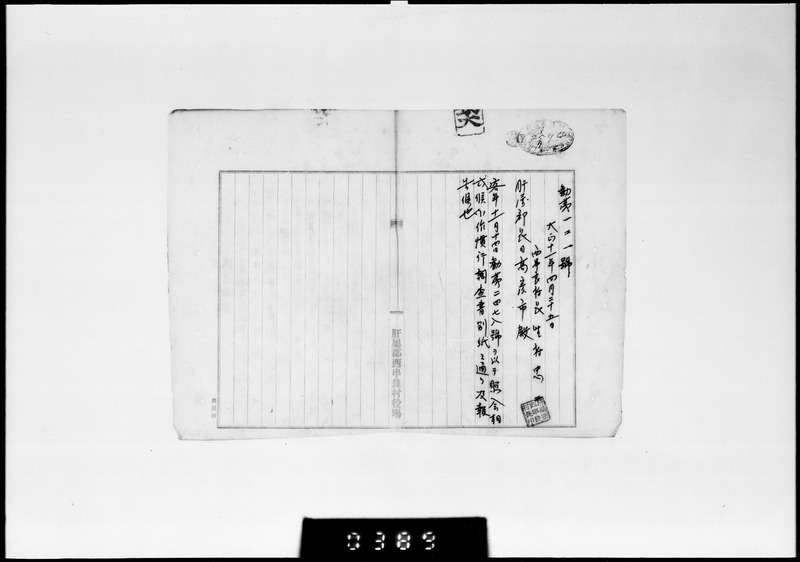 勧第一二一號
大正十一年四月二十五日
西串良村長 生村忠
肝属郡長日高彦市殿
客年十一月十四日勧第二四七八號ヲ以テ照会相
成候小作慣行調査書別紙之通リ及報
告候也
肝属郡西串良村役場
0389